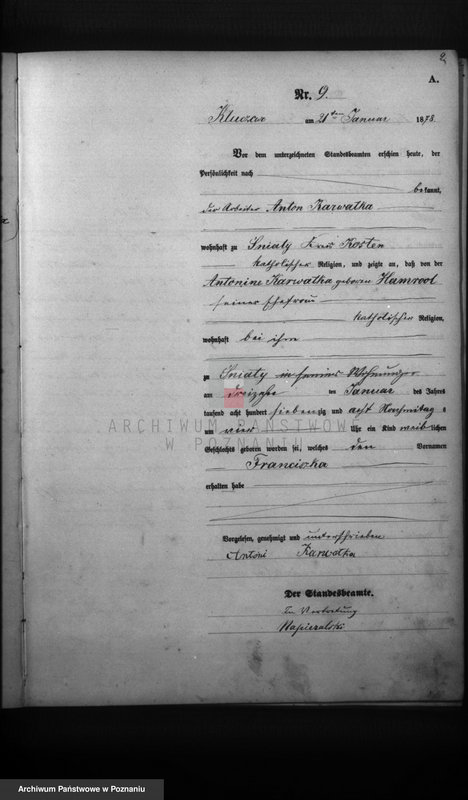 2
A.
Nr. 9.
am 21ten Januar 1878.
Vor dem unterzeichneten Standesbeamten erschien heute, der
Persönlichkeit nach
bekannt,
der Arbeiter Anton Karwatka
wohnhaft zu Sniaty Kreis Kosten
katholischer Religion, und zeigte an, daß von der
Antonine Karwatka geboren
seiner Ehefrau
katholischer Religion,
wohnhaft bei ihm
zu Sniaty in seiner Wohnung
am dreizehn ten Januar des Jahres
tausend acht hundert siebenzig und acht Nachmittag s
um vier Uhr ein Kind weiblichen
Geschlechts geboren worden sei, welches den Vornamen
Franciszka
erhalten habe
Vorgelesen, genehmigt und unterschrieben
Antoni Karwatka
Der Standesbeamte.
In Vertretung
ARCHIWUM PAŃSTWOWE
W POZNANIU
Archiwum Państwowe w Poznaniu